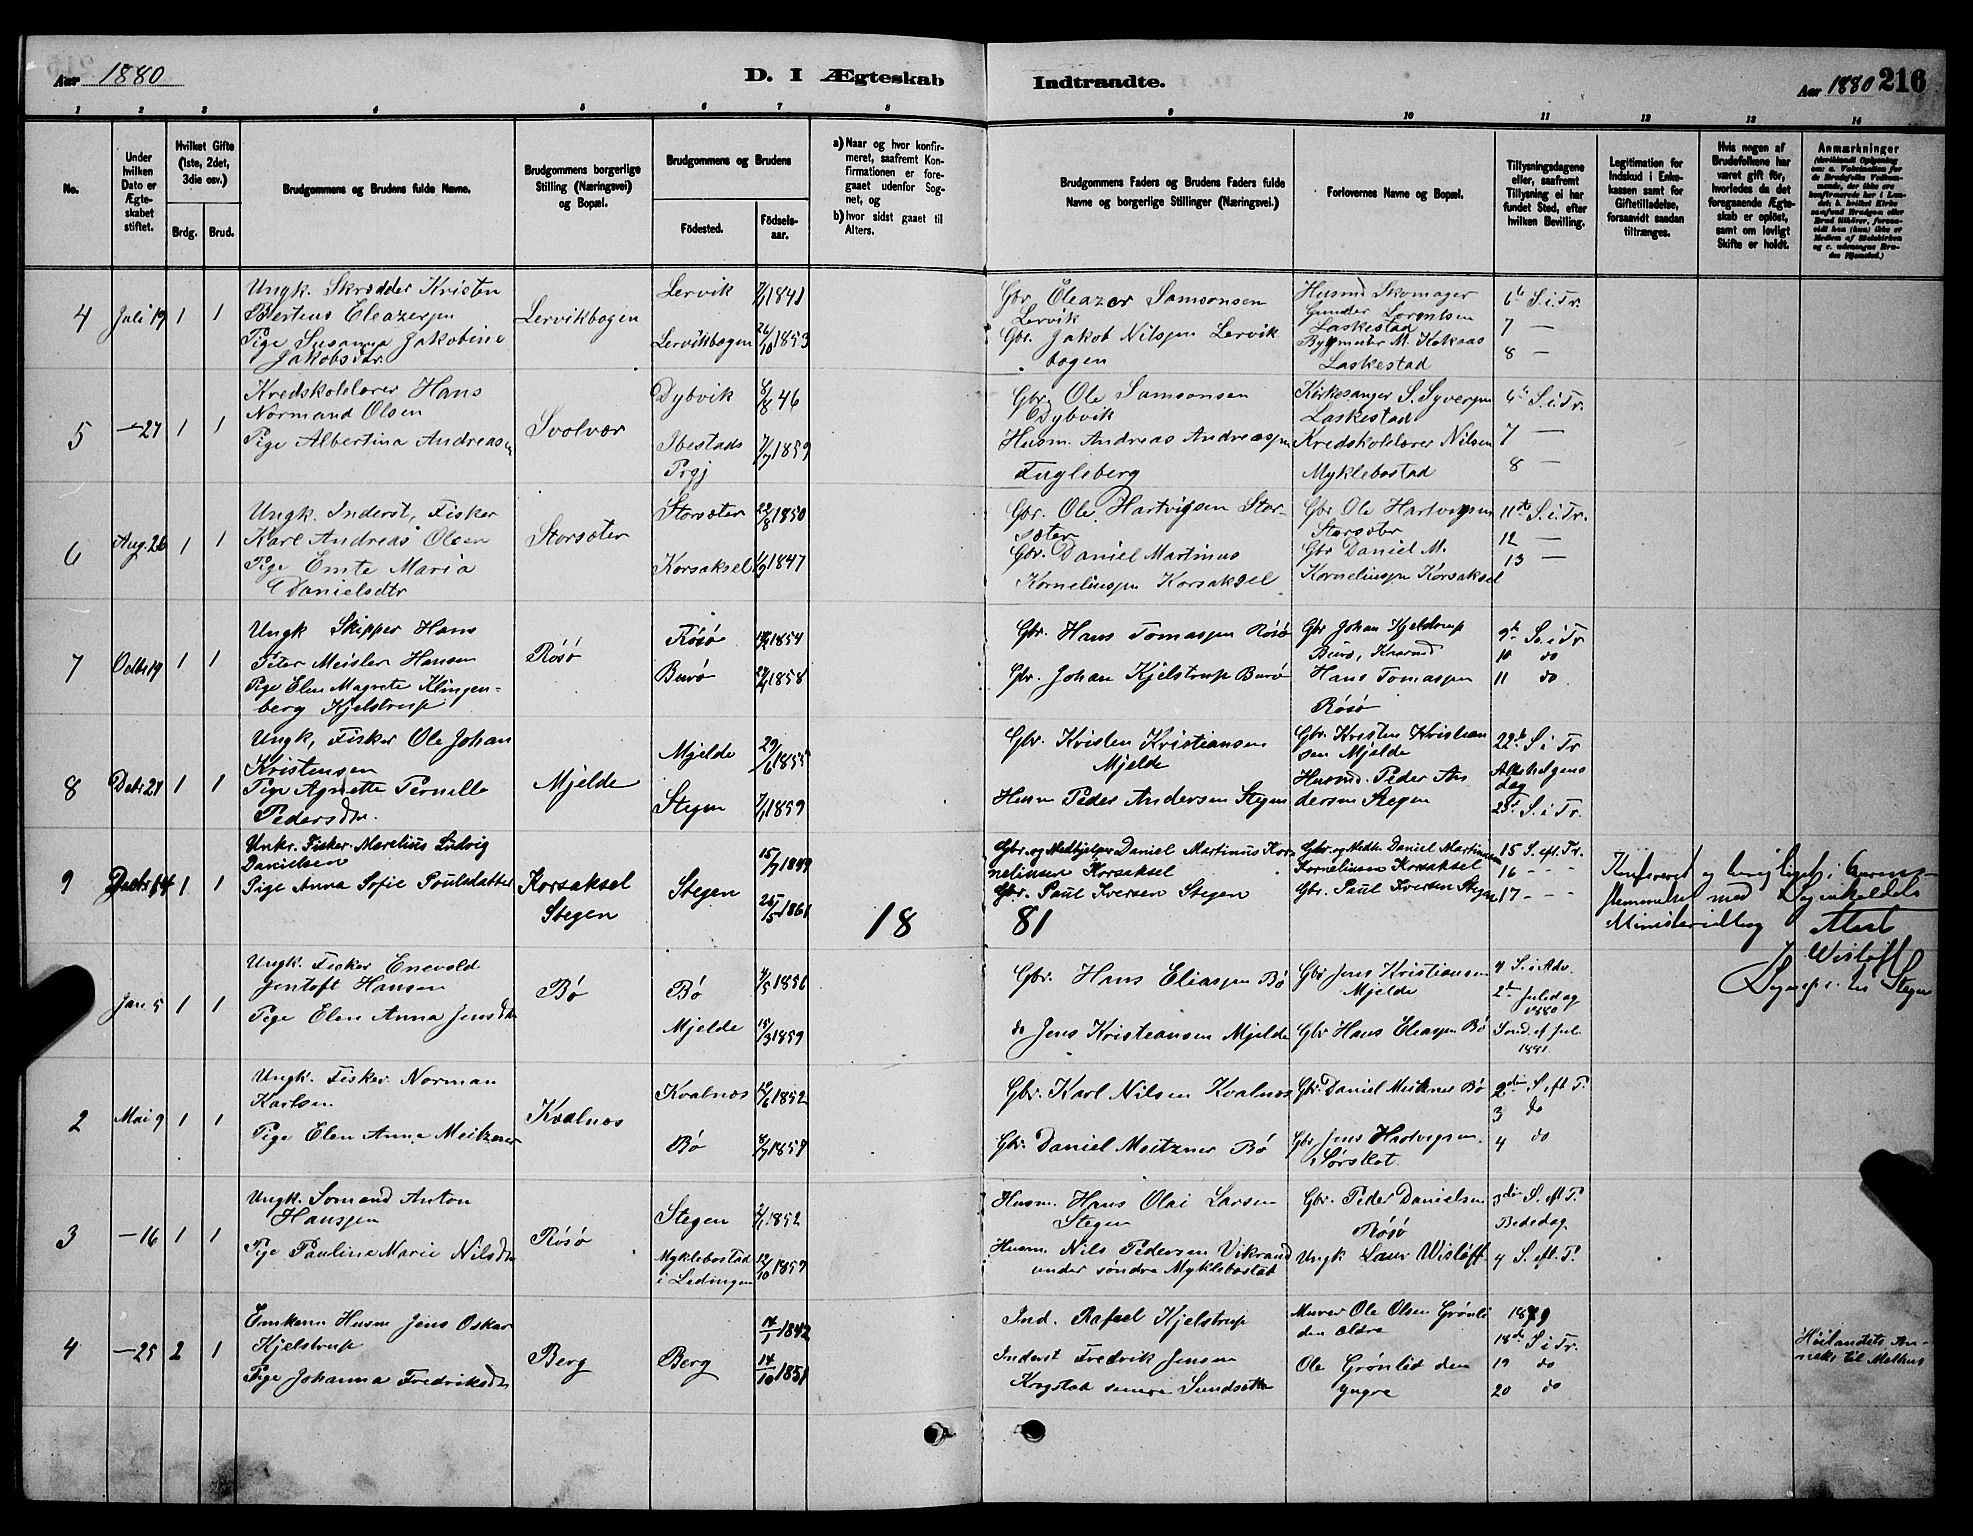 Aar 1880
D. I Ægteskab
Indtraadte.
Aar 1880 216
1 2 3 4 5 6 7 8 9 10 11 12 13 14
No.
Under hvilken Dato er Ægteskabet stiftet.
Hvilket Gifte (1ste, 2det, 3die osv.)
Brdg. Brud.
Brudgommens og Brudens fulde Navne.
Brudgommens borgerlige Stilling (Næringsvei) og Bopæl.
Brudgommens og Brudens
Födested.
Födselsaar.
a) Naar og hvor konfirmeret, saafremt Konfirmationen er foregaaet udenfor Sognet, og
b) hvor sidst gaaet til Alters.
Brudgommens Faders og Brudens Faders fulde Navne og borgerlige Stillinger (Næringsvei.)
Forlovernes Navne og Bopæl.
Tillysningsdagene eller, saafremt Tillysning ei har fundet Sted, efter hvilken Bevilling.
Legitimation for Indskud i Enkekassen samt for Giftetilladelse, forsaavidt saadan tiltrænges.
Hvis nogen af Brudefolkene har været gift för, hvorledes da det foregaaende Ægteskab er oplöst, samt om lovligt Skifte er holdt.
Anmærkninger
4 Juli 19 1 1
Ungk. Skrædder Kristen
Berteus Eleazersen
Pige Susanna Jakobine
Jakobsdtr.
Lervikbogen
Lervik 1841
Lervikbogen 26/10 1853
Gbr. Eleazer Samsonsen
Lervik
Gbr. Jakob Nilssen Lervik
bogen
Husmd Skomager
Gunder Lorentsen
Laskestad
Bygmester M. Kokaas
Laskestad
6te S. i Tr.
7 —
8 —
5 —27 1 1
Kredskolelærer Hans
Normand Olsen
Pige Albertina Andreasen
Svolvær
Dybvik 6/8 46
Ibestads
Prgj 1859
Gbr. Ole Samsonsen
Dybvik
Husm. Andreas Andreassen
Fugleberg
Kirkesanger S. Syversen
Laskestad
Kredskolelærer Nilsen
Myklebostad
6te S. i Tr.
7 —
8 —
6 Aug. 26 1 1
Ungk. Inderst, Fisker
Karl Andreas Olsen
Pige Emte Maria
Danielsdtr
Storsæter
Storsæter 22/8 1850
Korsaksel 1847
Gbr. Ole Hartvigsen Stor-
sæter
Gbr. Daniel Martinus
Korneliussen Korsaksel
Gbr Ole Hartvigsen
Storsæter
Gbr Daniel M.
Korneliussen Korsaksel
11te S. i Tr.
12 —
13 —
7 Octbr 19 1 1
Ungk Skipper Hans
Peter Meisler Hansen
Pige Elen Magrete Klingen-
berg Kjelstrup
Røsø
Røsø 1854
Burø 1858
Gbr. Hans Tomassen Røsø
Gbr. Johan Kjelstrup Burø
Gbr Johan Kjelstrup
Burø,
Hans Tomassen
Røsø
9de S. i Tr.
10 do
11 do
8 1 1
Ungk, Fisker Ole Johan
Kristensen
Pige Agnette Pernille
Pedersdtr.
Mjelde
Mjelde 29/6 1855
Stegen 1859
Gbr. Kristen Kristiansen
Mjelde
Husm Peder Andersen Stegen
Gbr. Kristen Kristian
sen Mjelde
Husmd. Peder An
dersen Stegen
22de S. i Tr
Allehelgens
dag
23de S. i Tr.
9 1 1
Unkr. Fisker Marelius Ludvig
Danielsen
Pige Anna Sofie Poulsdatter
Korsaksel
Stegen
Stegen
15/7 1849
25/5 1861
Gbr. og Medhjelper Daniel Martinus Kor-
neliusen Korsaksel
Gbr. Paul Iversen Stegen
Gbr. og Medh. Daniel Martinusen
Korneliusen Korsaksel
Gbr. Paul Iversen Stegen
15 S. eft. Tr.
16 - - -
17 - - -
med
Attest
Wisløff
Stegen
1881
Jan 5 1 1
Ungk. Fisker Enevold
Jentoft Hansen
Pige Elen Anna Jensdtr
Bø
Bø 1856
Mjelde 15/3 1859
Gbr. Hans Eliassen Bø
do Jens Kristiansen Mjelde
Gbr Jens Kristiansen
Mjelde
Gbr Hans Eliassen Bø
4 S. i Adv.
2den Juledag
1880
Sond. ef Jul
1881
2 Mai 9 1 1
Ungk. Fisker Norman
Karlsen
Pige Elen Anna Meitzner
Kvalnes
Kvalnes 1852
Bø 1857
Gbr. Karl Nilsen Kvalnes
Gbr. Daniel Meitzner Bø
Gbr. Daniel Meitzner Bø
Gbr Jens Hartvigsen
Sørskot.
2den S. eft T.
3 do
4 do
3 —16 1 1
Ungk. Sømand Anton
Hanssen
Pige Paulina Marie Nilsdtr
Røsø
Stegen 1852
Myklebostad
i Lødingen 12/10 1857
Husm. Hans Olai Larsen
Stegen
Husm. Nils Pedersen Vikrand
under søndre Myklebostad
Gbr. Peder Danielsen
Røsø
Ungk Laur Wisløff
3die S. eft T.
Bededag
4 S. eft. T.
4 —25 2 1
Enkem Husm Jens Oskar
Kjelstrup
Pige Johanna Fredriksdtr
Berg
Berg 14/1 1842
14/10 1851
Ind. Rafael Kjelstrup
Inderst Fredrik Jensen
Krogstad senere Sundsætr
Murer Ole Olsen Grønli
den ældre
Ole Grønlid den
yngre
1879
18de S i Tr.
19 do
20 do
Høilandets An-
neks til